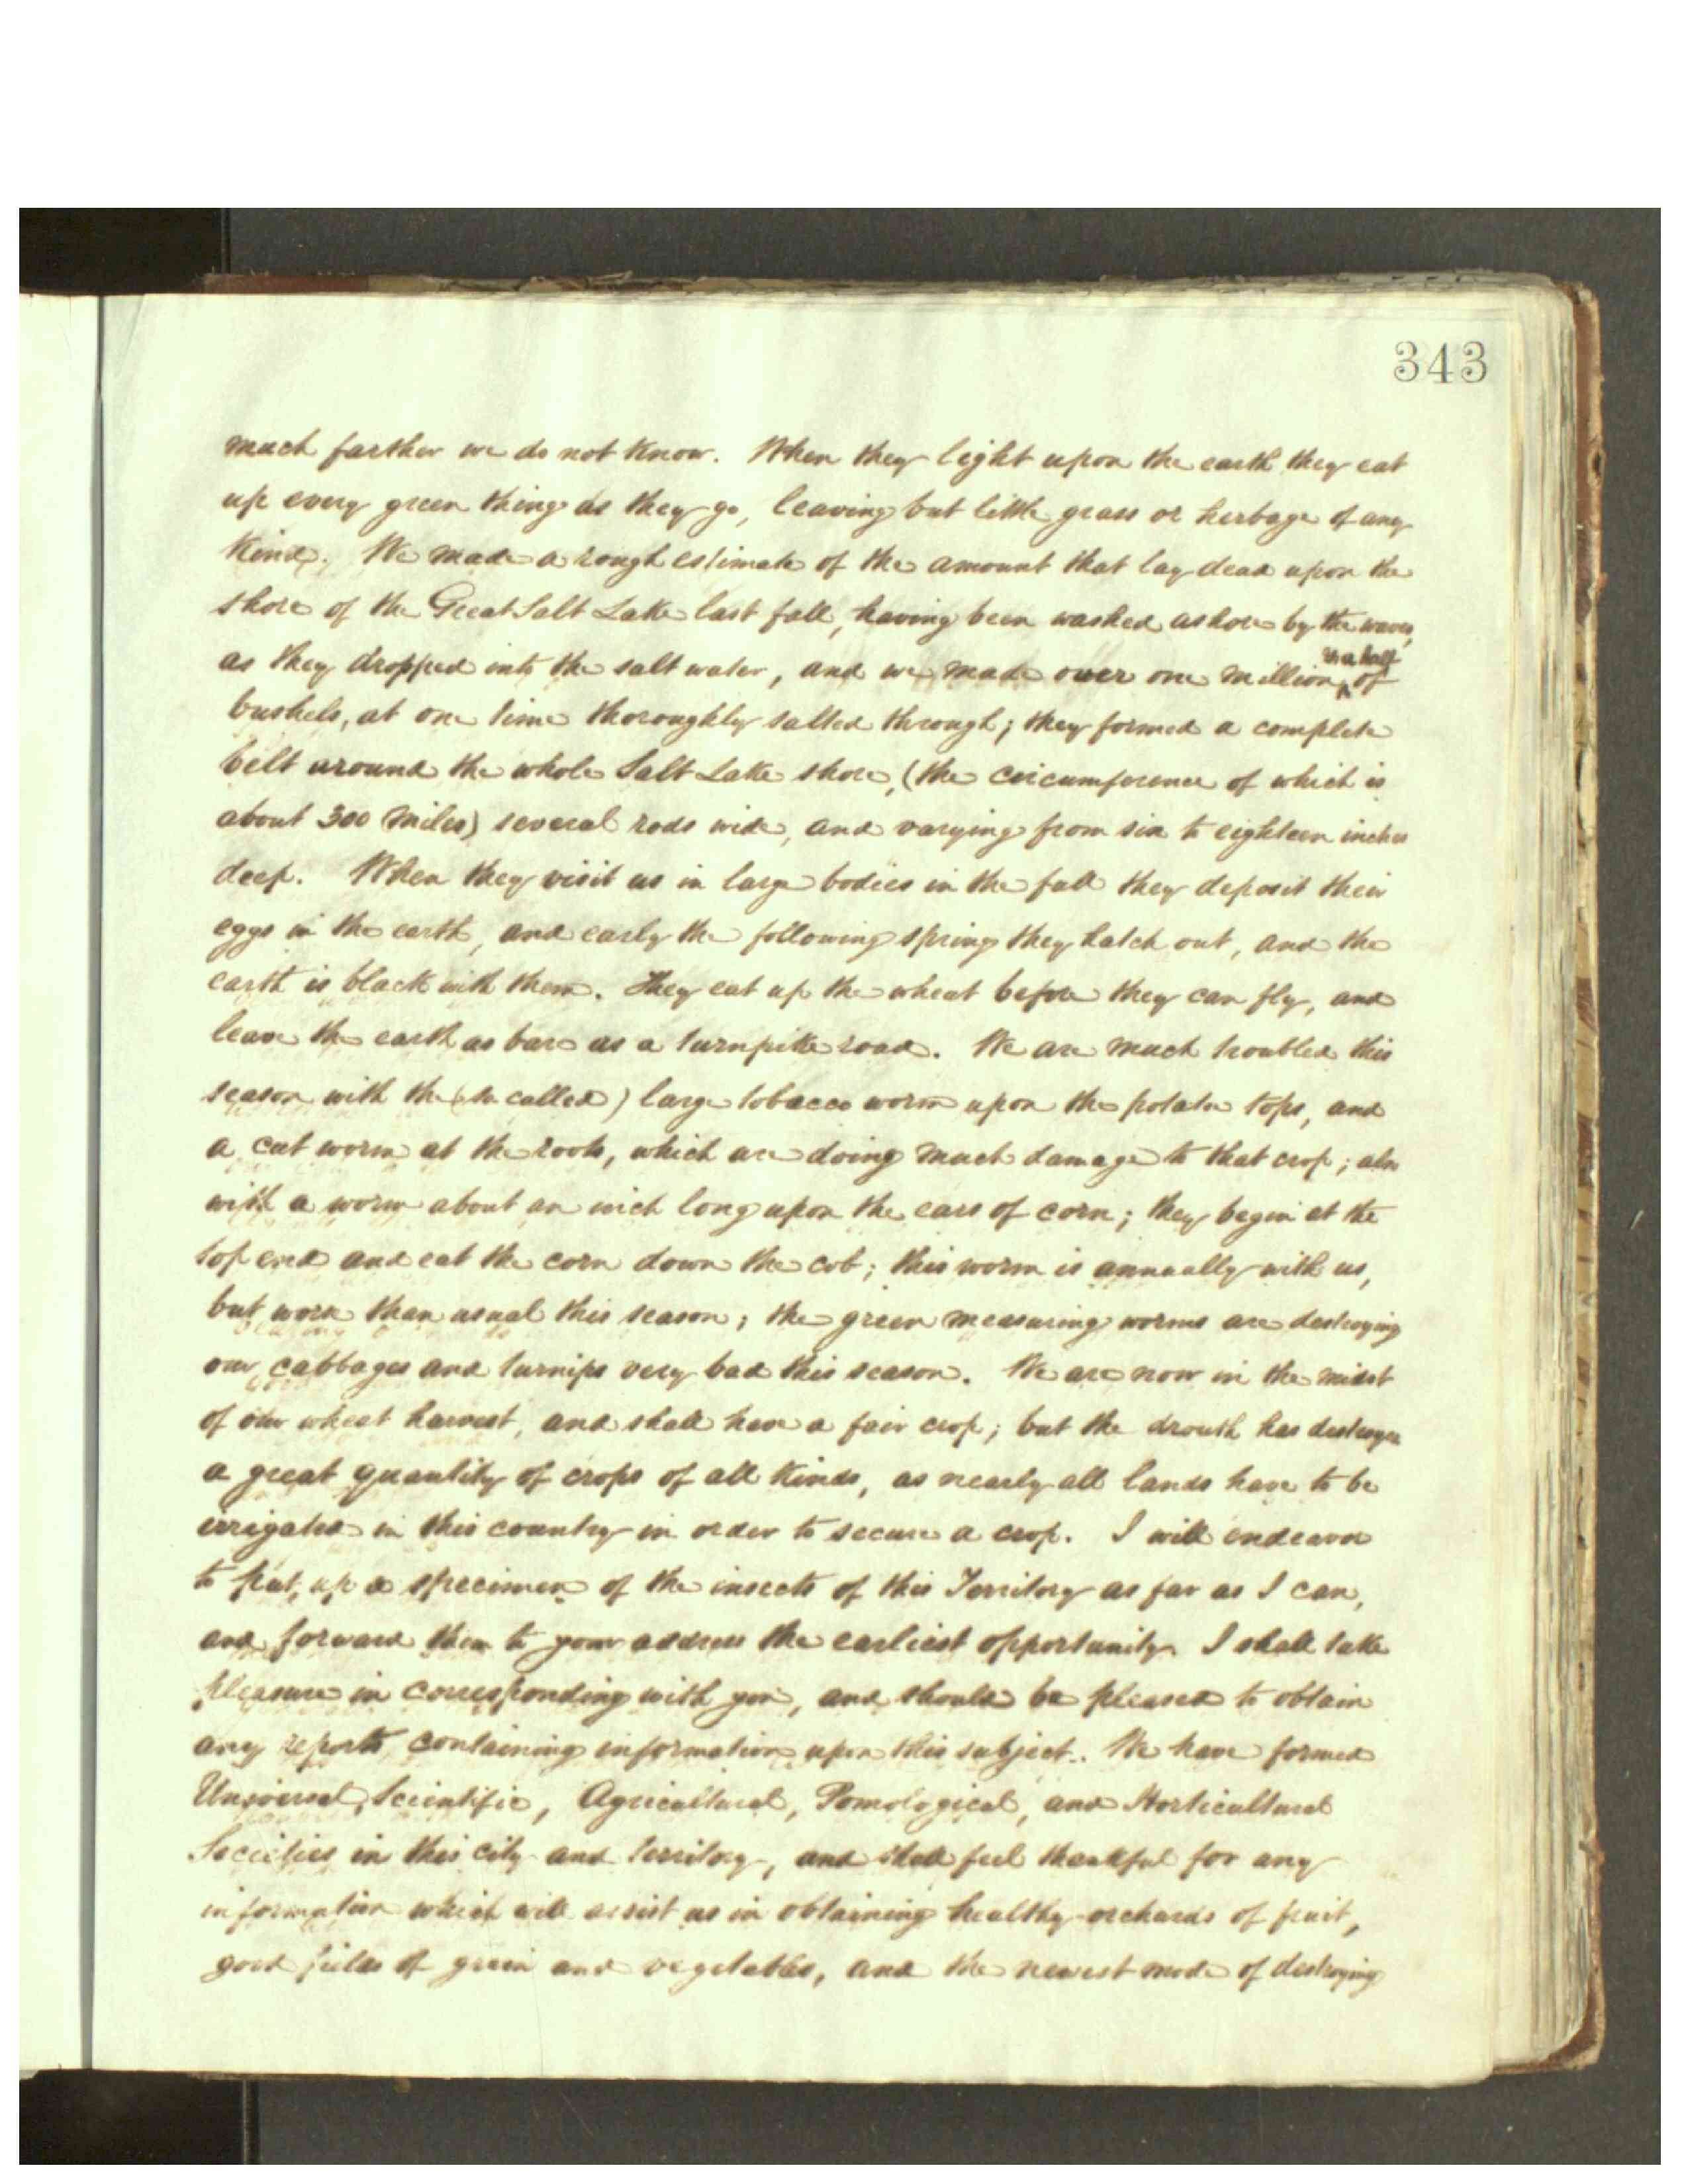 343
much farther we do not know. When they light upon the earth they eat
up every green thing as they go, leaving but little grass or herbage of any
kind. We made a rough estimate of the amount that lay dead upon the
shore of the Great Salt Lake last fall, having been washed ashore by the waves,
as they dropped into the salt water, and we made over one million & a half of
bushels, at one time thoroughly salted through; they formed a complete
belt around the whole Salt Lake shore, (the circumference of which is
about 300 miles) several rods wide, and varying from six to eighteen inches
deep. When they visit us in large bodies in the fall they deposit their
eggs in the earth, and early the following spring they hatch out, and the
earth is black with them. They eat up the wheat before they can fly, and
leave the earth as bare as a turnpike road. We are much troubled this
season with the (so called) large tobacco worm upon the potato tops, and
a cut worm at the roots, which are doing much damage to that crop; also
with a worm about an inch long upon the ears of corn; they begin at the
top end and eat the corn down the cob; this worm is annually with us,
but worse than usual this season; the green measuring worms are destroying
our cabbages and turnips very bad this season. We are now in the midst
of our wheat harvest, and shall have a fair crop; but the drouth has destroyed
a great quantity of crops of all kinds, as nearly all lands have to be
irrigated in this country in order to secure a crop. I will endeavor
to put up a specimen of the insects of this Territory as far as I can,
and forward them to your address the earliest opportunity. I shall take
pleasure in corresponding with you, and should be pleased to obtain
any reports containing information upon this subject. We have formed
Universal, Scientific, Agricultural, Pomological, and Horticultural
Societies in this city and territory, and shall feel thankful for any
information which will assist us in obtaining healthy orchards of fruit,
good fields of grain and vegetables, and the newest mode of destroying